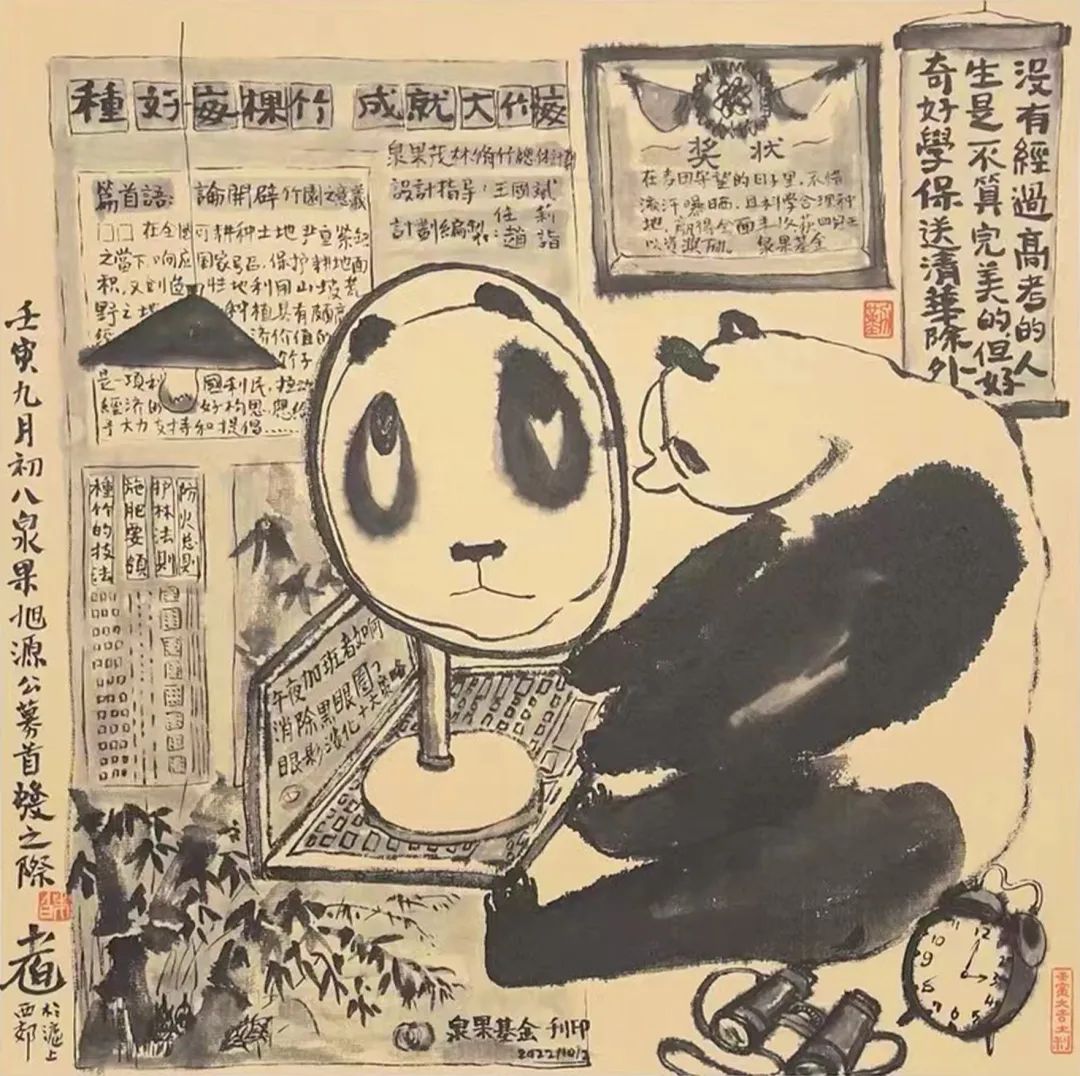 種好每棵竹 成就大竹海
泉果茂林修竹總体計劃
設計指导:王國斌
任莉
計劃編製:趙詣
篇首語: 論開辟竹園之意義
□□在全國可耕种土地
之當下,响应國家号召,保护耕地面
积,又創造性地利用山坡荒
野之地 种植具有頗高
经济价值的
竹子
是一項利國利民,拉动
經济的好构思,應给
予大力支持和提倡……
防火总则
护林法则
施肥要領
種竹的技法
奖状
在麦田守望的日子里,不惜
流汗曝晒,且科學合理种
地,贏得全面丰收,获
以资獎励。 泉果基金
沒有經過高考的人
生是不算完美的但好
奇好學保送清華除外
午夜加班者如何
消除黑眼圈?
眼影淡化十大策略
壬寅九月初八泉果旭源公募首發之際
於滬上
西郊
泉果基金 刊印
2022/10/2
12
1
2
3
4
5
6
7
8
9
10